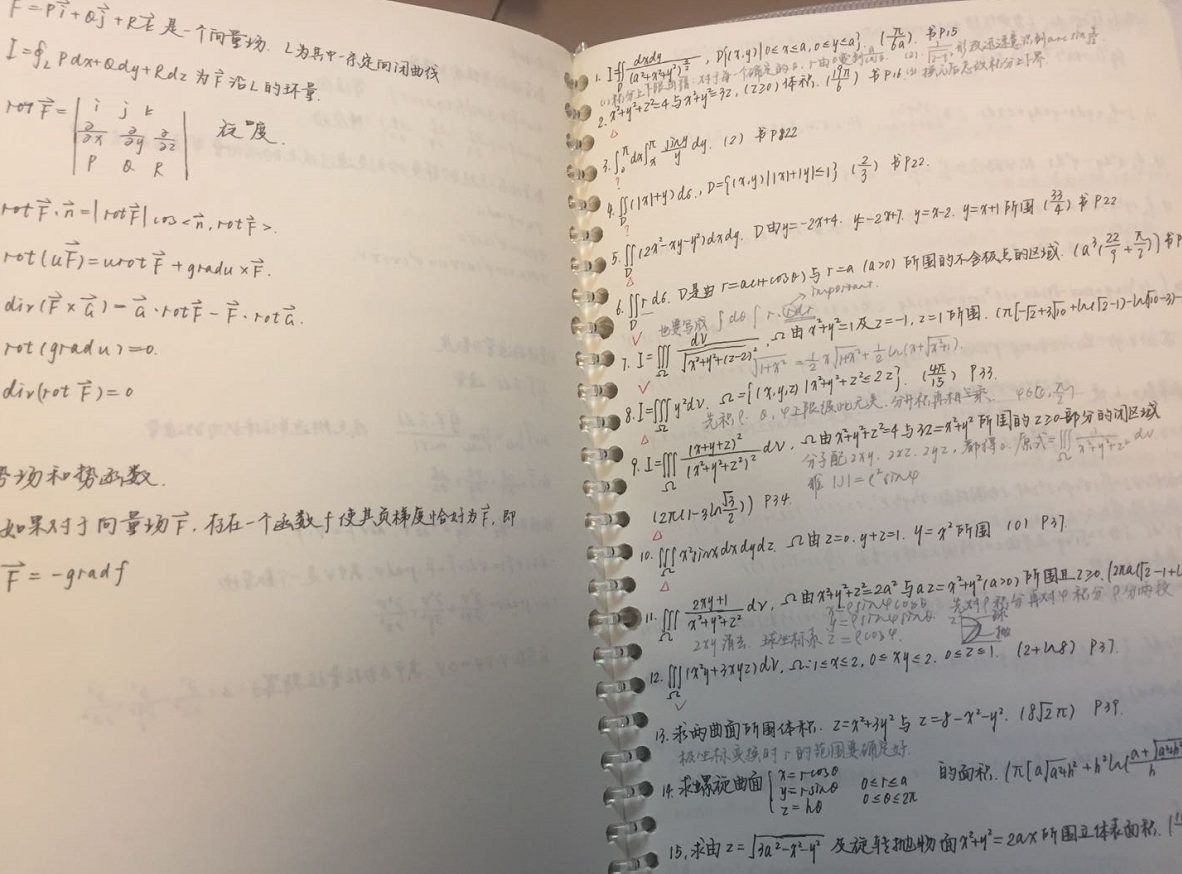 F⃗=Pi⃗+Qj⃗+Rk⃗ 是一个向量场. L为其中一条定向闭曲线
I=∮_L Pdx+Qdy+Rdz 为F⃗沿L的环量.
rotF⃗= | i j k |
| ∂/∂x ∂/∂y ∂/∂z | 旋度.
| P Q R |
rotF⃗·n⃗=|rotF⃗|cos<n⃗,rotF⃗>.
rot(uF⃗)=urotF⃗+gradu×F⃗.
div(F⃗×G⃗)=G⃗·rotF⃗-F⃗·rotG⃗.
rot(gradu)=0.
div(rotF⃗)=0
势场和势函数.
如果对于向量场F⃗, 存在一个函数f使其负梯度恰好为F⃗, 即
F⃗=-gradf
1. I=∬_D dxdy/(a²+x²+y²)^(3/2), D{(x,y)|0≤x≤a, 0≤y≤a}. (π/6a) 书P15
2. x²+y²+z²=4与x²+y²=3z, (z≥0)体积. (19π/6) 书P16
3. ∫_0^π dx∫_x^π siny/y dy. (2) 书P22
4. ∬_D (|x|+y)dσ, D={(x,y)||x|+|y|≤1} (2/3) 书P22.
5. ∬_D (2x²-xy-y²)dxdy. D由y=-2x+4. y=-2x+7. y=x-2. y=x+1所围 (33/4) 书P22
6. ∬_D rdσ. D是由r=a(1+cosθ)与r=a (a>0)所围的不含极点的区域. (a³(22/9+π/2)) 书P
也要写成∫dθ∫r·rdr important.
7. I=∭_Ω dV/√(x²+y²+(z-2)²), Ω由x²+y²=1及z=-1, z=1所围. (π[-√2+3√10+ln(√2-1)-ln(√10-3)-
√(1+x²)=1/2x√(1+x²)+1/2ln(x+√(x²+1))
8. I=∭_Ω y²dV. Ω={(x,y,z)|x²+y²+z²≤2z}. (4π/15) P33.
9. I=∭_Ω (x+y+z)²/(x²+y²+z²)² dV, Ω由x²+y²+z²=4与3z=x²+y²所围的z≥0部分的闭区域
分子配2xy. 2xz. 2yz, 都得0. 原式=∭_Ω 1/(x²+y²+z²) dV
|J|=ρ²sinφ
(2π(1-3ln√3/2)) P34.
10. ∭_Ω x²sinxdxdydz. Ω由z=0. y+z=1. y=x²所围 (0) P37.
11. ∭_Ω (2xy+1)/(x²+y²+z²) dV, Ω由x²+y²+z²=2a²与az=x²+y²(a>0)所围且z≥0.(2πa(√2-1+
2xy消去. 球坐标系 x=ρsinφcosθ y=ρsinφsinθ. z=ρcosφ. 先对ρ积分再对φ积分 ρ分两段
12. ∭_Ω (x²y+3xyz)dV, Ω:1≤x≤2, 0≤xy≤2, 0≤z≤1. (2+ln8) P37.
13. 求两曲面所围体积. z=x²+3y²与z=8-x²-y². (8√2π) P39.
极坐标变换时r的范围要确定好.
14. 求螺旋曲面{x=rcosθ y=rsinθ z=hθ 0≤r≤a 0≤θ≤2π 的面积. (π[a√(a²+h²)+h²ln(a+√(a²+h²))/h
15. 求由z=√(3a²-x²-y²)及旋转抛物面x²+y²=2az所围立体表面积. (